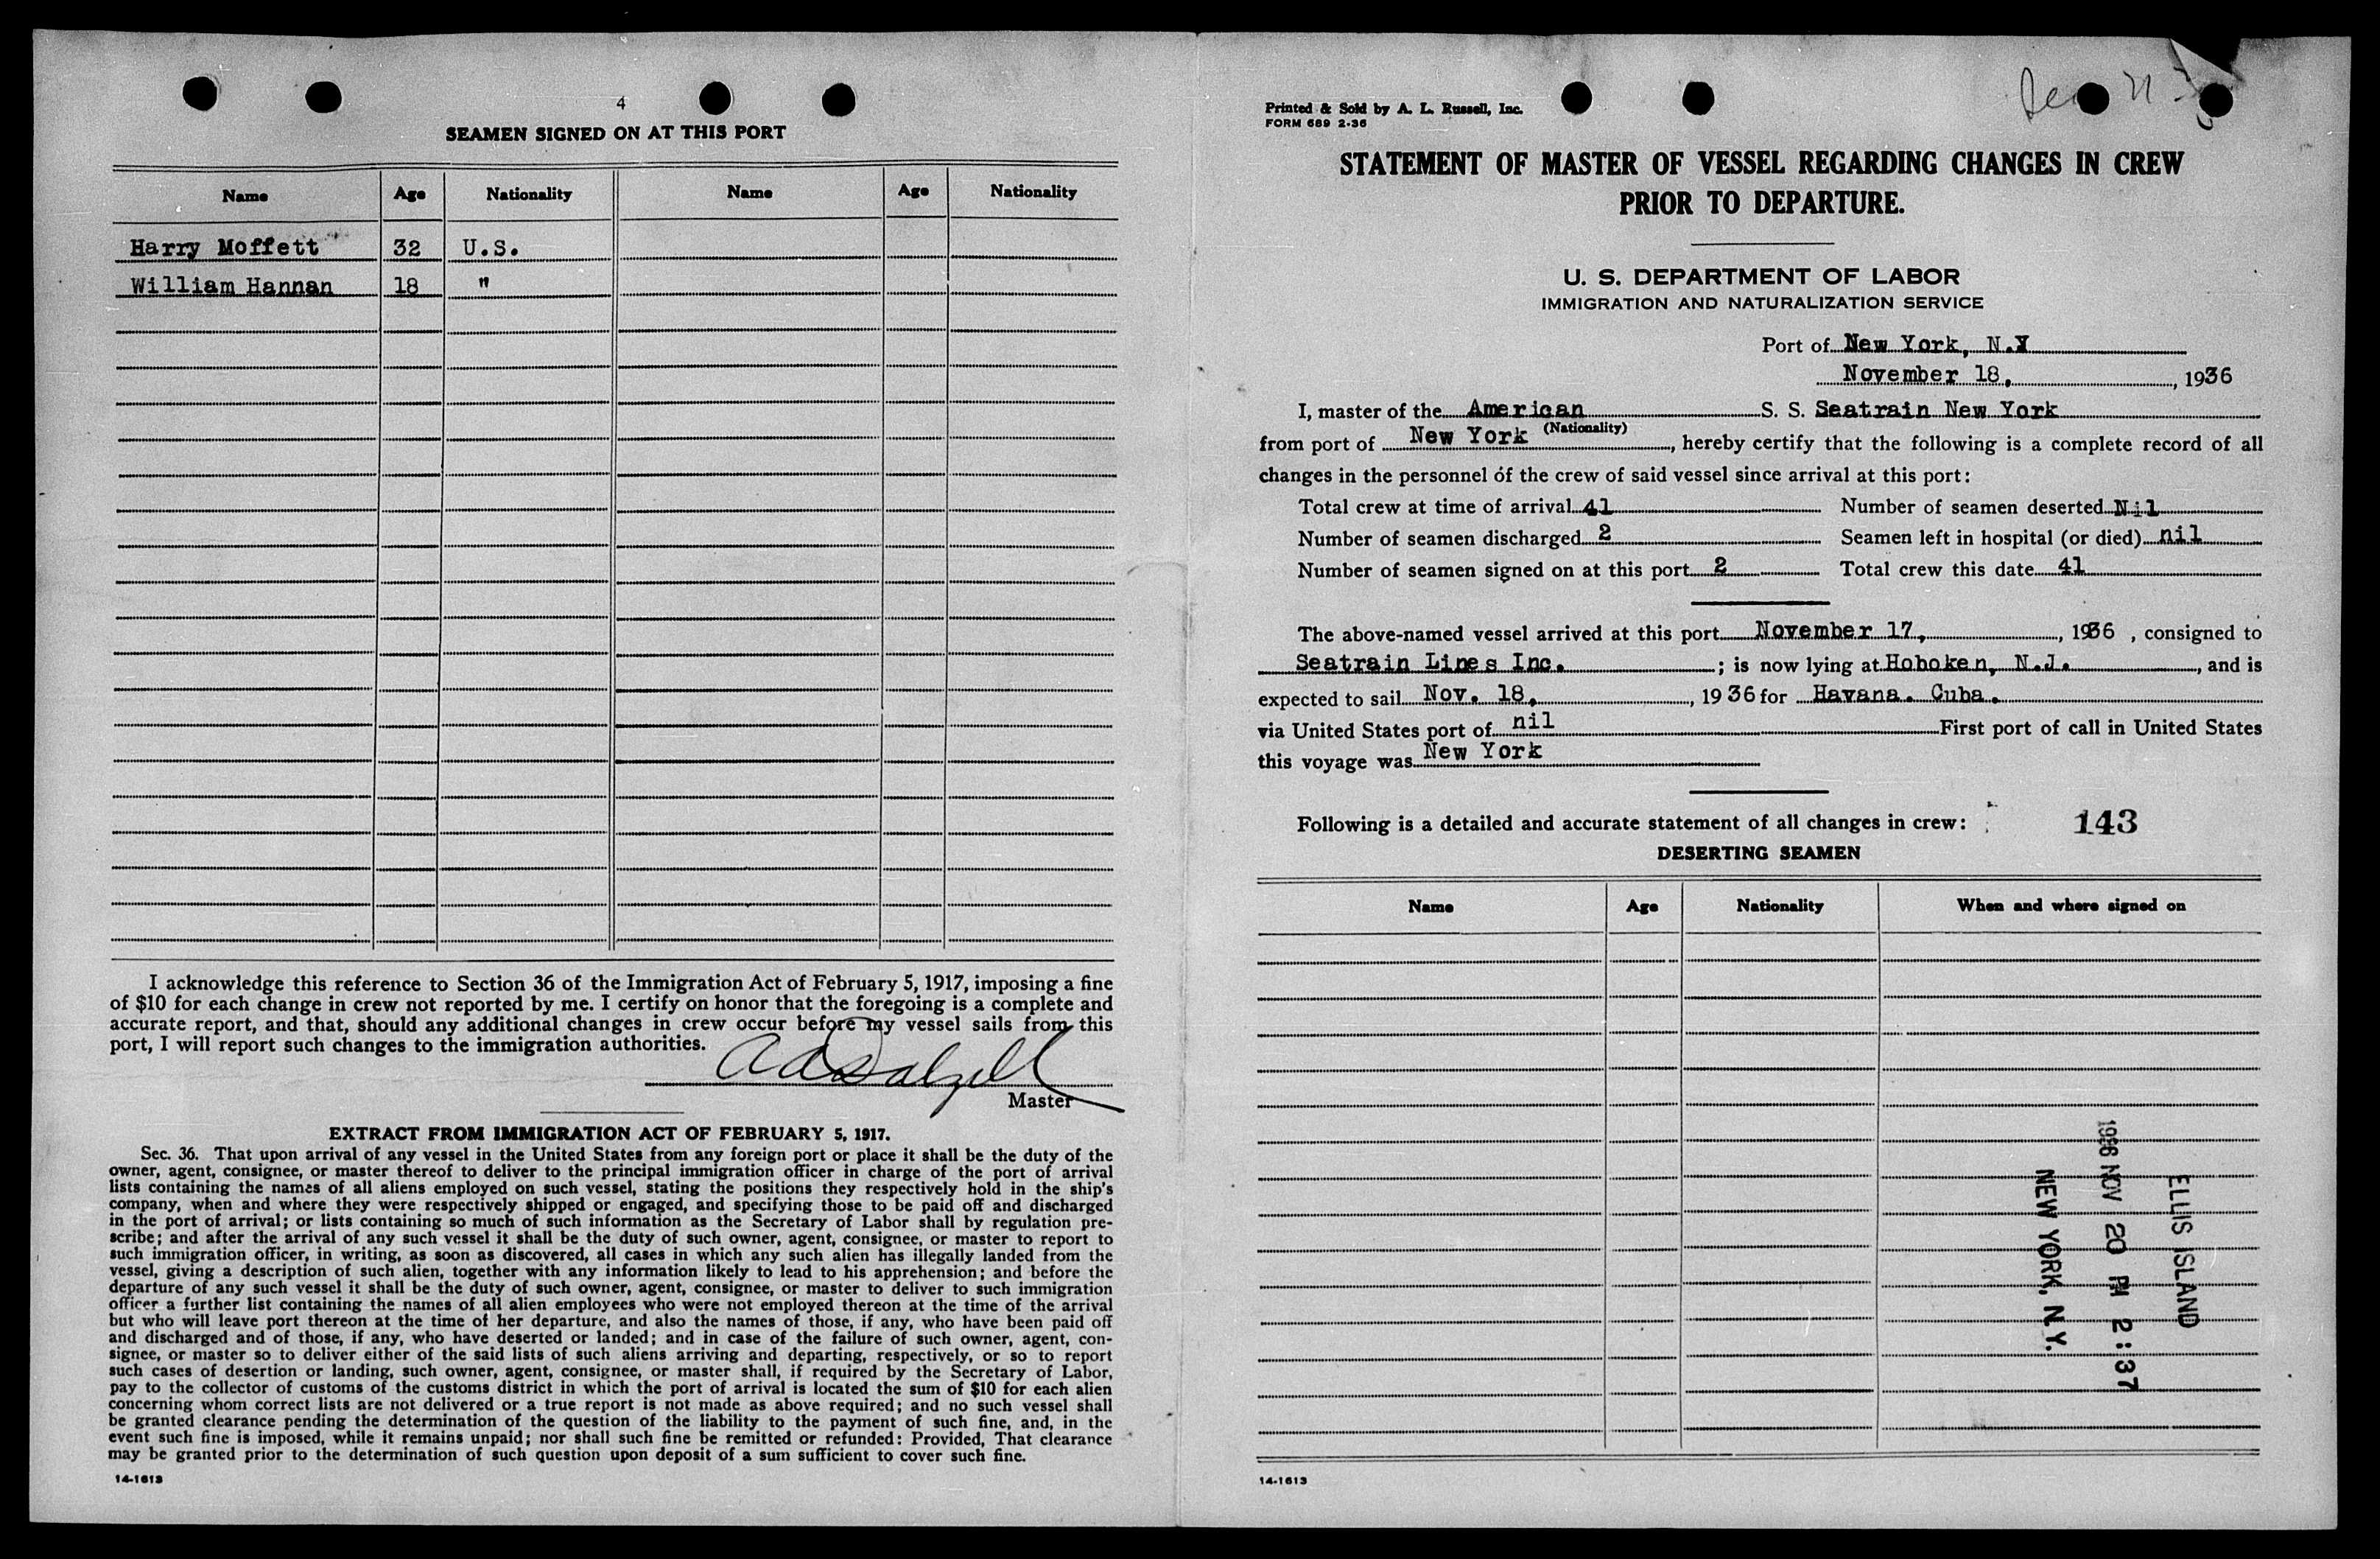 4
SEAMEN SIGNED ON AT THIS PORT
Name Age Nationality Name Age Nationality
Harry Moffett 32 U.S.
William Hannan 18 "
I acknowledge this reference to Section 36 of the Immigration Act of February 5, 1917, imposing a fine
of $10 for each change in crew not reported by me. I certify on honor that the foregoing is a complete and
accurate report, and that, should any additional changes in crew occur before my vessel sails from this
port, I will report such changes to the immigration authorities.
A A Dalzell
Master
EXTRACT FROM IMMIGRATION ACT OF FEBRUARY 5, 1917.
Sec. 36. That upon arrival of any vessel in the United States from any foreign port or place it shall be the duty of the
owner, agent, consignee, or master thereof to deliver to the principal immigration officer in charge of the port of arrival
lists containing the names of all aliens employed on such vessel, stating the positions they respectively hold in the ship's
company, when and where they were respectively shipped or engaged, and specifying those to be paid off and discharged
in the port of arrival; or lists containing so much of such information as the Secretary of Labor shall by regulation pre-
scribe; and after the arrival of any such vessel it shall be the duty of such owner, agent, consignee, or master to report to
such immigration officer, in writing, as soon as discovered, all cases in which any such alien has illegally landed from the
vessel, giving a description of such alien, together with any information likely to lead to his apprehension; and before the
departure of any such vessel it shall be the duty of such owner, agent, consignee, or master to deliver to such immigration
officer a further list containing the names of all alien employees who were not employed thereon at the time of the arrival
but who will leave port thereon at the time of her departure, and also the names of those, if any, who have been paid off
and discharged and of those, if any, who have deserted or landed; and in case of the failure of such owner, agent, con-
signee, or master so to deliver either of the said lists of such aliens arriving and departing, respectively, or so to report
such cases of desertion or landing, such owner, agent, consignee, or master shall, if required by the Secretary of Labor,
pay to the collector of customs of the customs district in which the port of arrival is located the sum of $10 for each alien
concerning whom correct lists are not delivered or a true report is not made as above required; and no such vessel shall
be granted clearance pending the determination of the question of the liability to the payment of such fine, and, in the
event such fine is imposed, while it remains unpaid; nor shall such fine be remitted or refunded: Provided, That clearance
may be granted prior to the determination of such question upon deposit of a sum sufficient to cover such fine.
14-1613
Printed & Sold by A. L. Russell, Inc.
FORM 689 2-36
STATEMENT OF MASTER OF VESSEL REGARDING CHANGES IN CREW
PRIOR TO DEPARTURE.
U. S. DEPARTMENT OF LABOR
IMMIGRATION AND NATURALIZATION SERVICE
Port of New York, N.Y
November 18, , 1936
I, master of the American S. S. Seatrain New York
(Nationality)
from port of New York , hereby certify that the following is a complete record of all
changes in the personnel of the crew of said vessel since arrival at this port:
Total crew at time of arrival 41 Number of seamen deserted Nil
Number of seamen discharged 2 Seamen left in hospital (or died) nil
Number of seamen signed on at this port 2 Total crew this date 41
The above-named vessel arrived at this port November 17, , 1936 , consigned to
Seatrain Lines Inc. ; is now lying at Hoboken, N.J. , and is
expected to sail Nov. 18, , 1936 for Havana. Cuba.
via United States port of nil First port of call in United States
this voyage was New York
Following is a detailed and accurate statement of all changes in crew: 143
DESERTING SEAMEN
Name Age Nationality When and where signed on
ELLIS ISLAND
1936 NOV 20 PM 2:37
NEW YORK, N.Y.
14-1613